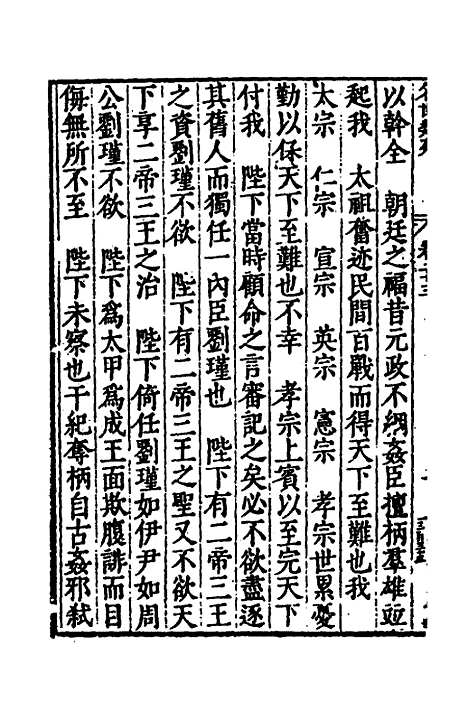 以幹全　朝廷之福昔元政不綱姦臣擅柄羣雄竝
起我　太祖奮迹民間百戰而得天下至難也我
太宗　仁宗　宣宗　英宗　憲宗　孝宗世累憂
勤以保天下至難也不幸　孝宗上賓以至完天下
付我　陛下當時顧命之言審記之矣必不欲盡逐
其舊人而獨任一內臣劉瑾也　陛下有二帝三王
之資劉瑾不欲　陛下有二帝三王之聖又不欲天
下享二帝三王之治　陛下倚任劉瑾如伊尹如周
公劉瑾不欲　陛下爲太甲爲成王面欺腹誹而目
侮無所不至　陛下未察也干紀奪柄自古姦邪弒